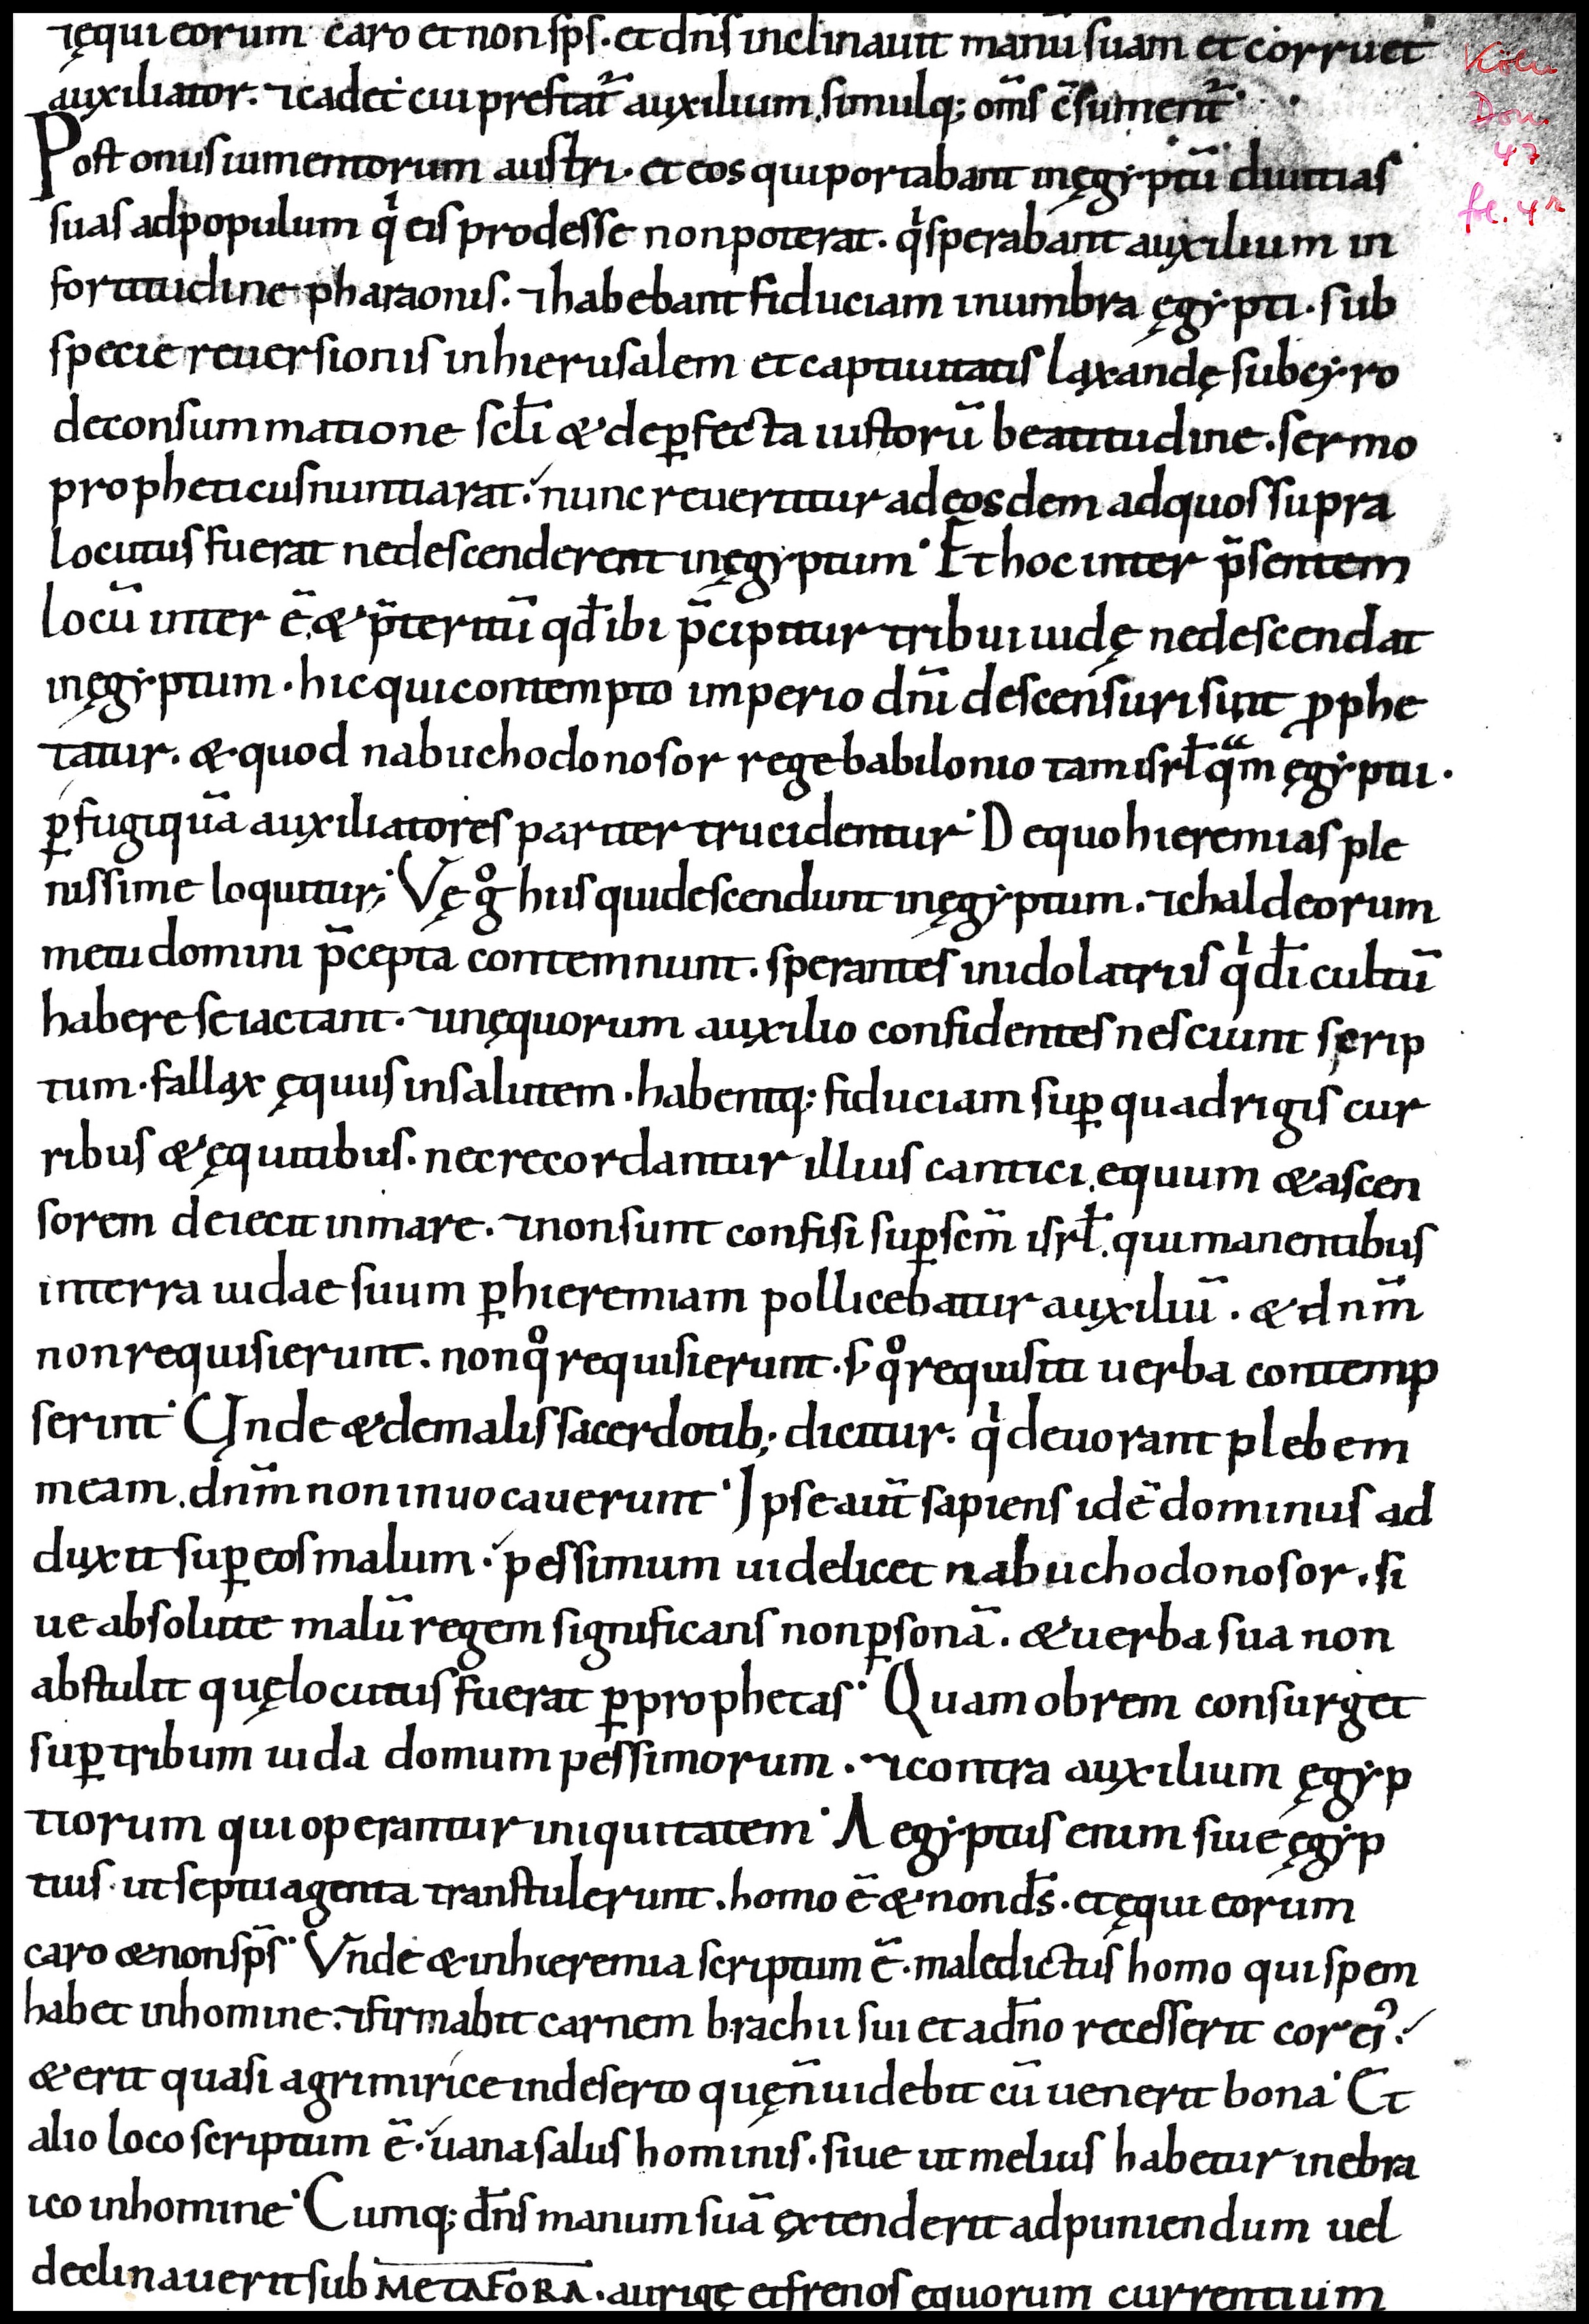 ⁊ ęqui eorum caro et non sp̅s. et dn̅s inclinauit manū suam et corruet
auxiliator. ⁊ cadet cui prestat᷑ auxilium, simulq; om̅s c̅sument᷑.
Post onus iumentorum austri. et eos qui portabant in ęgẏptū diuitias
suas ad populum qͥ eis prodesse non poterat. qͥ sperabant auxilium in
fortitudine pharaonis. ⁊ habebant fiduciam in umbra ęgẏpti. sub
specie reuersionis in hierusalem et captiuitatis laxandę sub cẏro
de consummatione scl̅i & de ꝑfecta iustorū beatitudine. sermo
propheticus nuntiarat. nunc reuertitur ad eosdem ad quos supra
locutus fuerat ne descenderent in ęgẏptum. Et hoc inter p̅sentem
locū inter ē. & p̅teritū qđ ibi p̅cipitur tribui iudę ne descendat
in ęgẏptum. hic qui contempto imperio dn̅i descensuri sunt ꝓphe
tatur. & quod nabuchodonosor rege babilonio tam isrl̅ qͣm ęgẏptii.
ꝑfugi quā auxiliatores pariter trucidentur. De quo hieremias ple
nissime loquitur; Vę gͦ hiis qui descendunt in ęgẏptum. ⁊ chaldeorum
metu domini p̅cepta contemnunt. sperantes in idolatriis qͥ di̅ cultū
habere se iactant. ⁊ in ęquorum auxilio confidentes nesciunt scrip
tum. fallax ęquus in salutem. habentq; fiduciam suꝑ quadrigis cur
ribus & ęquitibus. nec recordantur illius cantici. equum & ascen
sorem deiecit in mare. ⁊ non sunt confisi suꝑ scm̅ isrl̅. qui manentibus
in terra iudae suum ꝑ hieremiam pollicebatur auxiliū. & dnm̅
non requisierunt. non qͦ requisierunt. s; qͦ requisiti uerba contemp
serint. Unde & de malis sacerdotib; dicitur. qͥ deuorant plebem
meam. dnm̅ non inuocauerunt. Ipse aut̅ sapiens idē dominus ad
duxit suꝑ eos malum. pessimum uidelicet nabuchodonosor. si
ue absolute malū regem significans non ꝑsonā. & uerba sua non
abstulit quę locutus fuerat ꝑ prophetas. Quam obrem consurget
suꝑ tribum iuda domum pessimorum. ⁊ contra auxilium ęgẏp
tiorum qui operantur iniquitatem. Aegẏptus enim siue ęgẏp
tius. ut septuaginta transtulerunt. homo ē & non ds̅. et ęqui eorum
caro & non sp̅s. Vnde & in hieremia scriptum ē. maledictus homo qui spem
habet in homine. ⁊ firmabit carnem brachii sui et a dn̅o recesserit cor ei᾿.
& erit quasi agrimirice in deserto quę n̅ uidebit cū uenerit bona. Et
alio loco scriptum ē. uana salus hominis. siue ut melius habetur in ebra
ico in homine. Cumq; dn̅s manum suā extenderit ad puniendum uel
declinauerit sub METAFORA. aurige et frenos equorum currentium
Köln
Dom.
47
fol. 4r